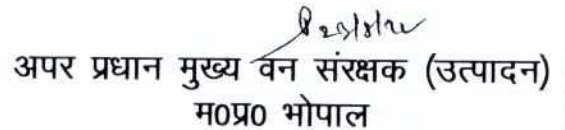 अपर प्रधान मुख्य वन संरक्षक (उत्पादन)
म0प्र0 भोपाल